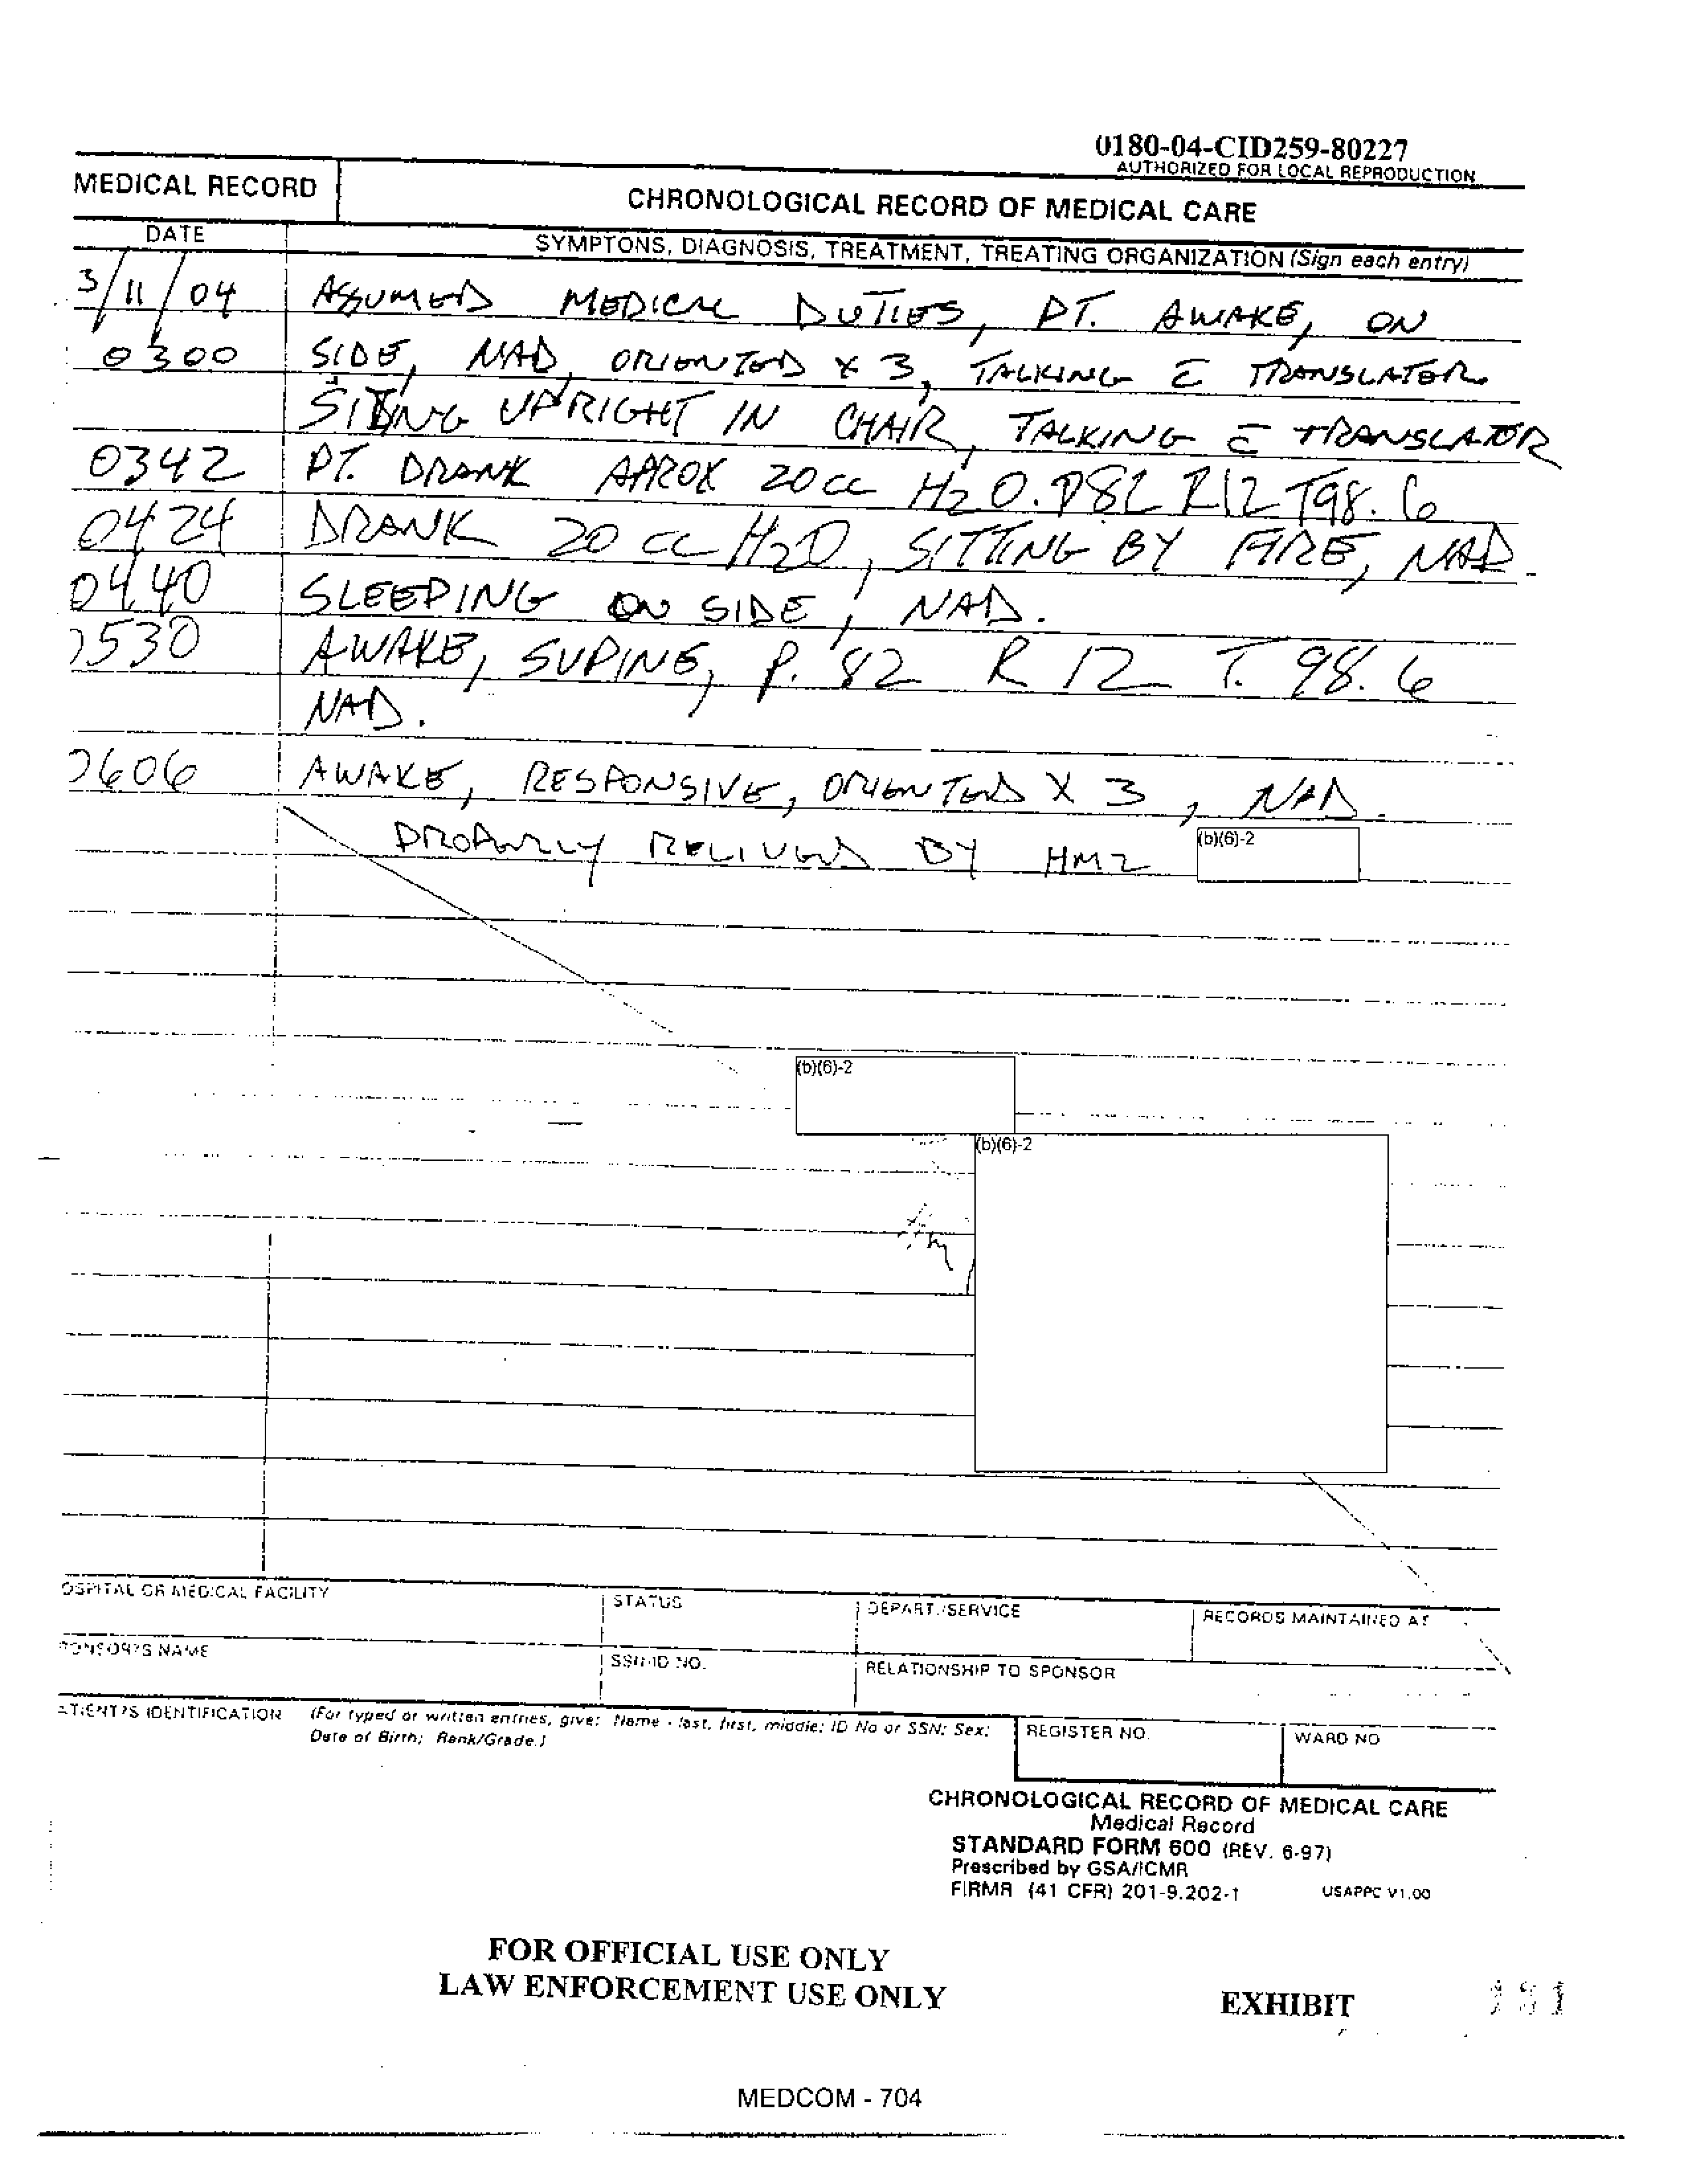 0180-04-CID259-80227
AUTHORIZED FOR LOCAL REPRODUCTION
MEDICAL RECORD
CHRONOLOGICAL RECORD OF MEDICAL CARE
DATE
SYMPTONS, DIAGNOSIS, TREATMENT, TREATING ORGANIZATION (Sign each entry)
3/11/04 ASSUMED MEDICAL DUTIES, PT. AWAKE, ON
0300 SIDE, NAD, ORIENTED X 3, TALKING c̄ TRANSLATOR
SITTING UPRIGHT IN CHAIR, TALKING c̄ TRANSLATOR
0342 PT. DRANK APROX 20cc H2O. P82 R12 T98.6
0424 DRANK 20 cc H2O, SITTING BY FIRE, NAD.
0440 SLEEPING ON SIDE, NAD.
0530 AWAKE, SUPINE, P. 82 R 12 T. 98.6
NAD.
0606 AWAKE, RESPONSIVE, ORIENTED X 3, NAD.
PROPERLY RELIVED BY HM2 (b)(6)-2
(b)(6)-2
(b)(6)-2
OSPITAL OR MEDICAL FACILITY
STATUS
DEPART./SERVICE
RECORDS MAINTAINED AT
PONSOR?S NAME
SSN/ID NO.
RELATIONSHIP TO SPONSOR
ATIENT?S IDENTIFICATION (For typed or written entries, give: Name - last, first, middle; ID No or SSN; Sex;
Date of Birth; Rank/Grade.)
REGISTER NO.
WARD NO
CHRONOLOGICAL RECORD OF MEDICAL CARE
Medical Record
STANDARD FORM 600 (REV. 6-97)
Prescribed by GSA/ICMR
FIRMR (41 CFR) 201-9.202-1 USAPPC V1.00
FOR OFFICIAL USE ONLY
LAW ENFORCEMENT USE ONLY
EXHIBIT
MEDCOM - 704